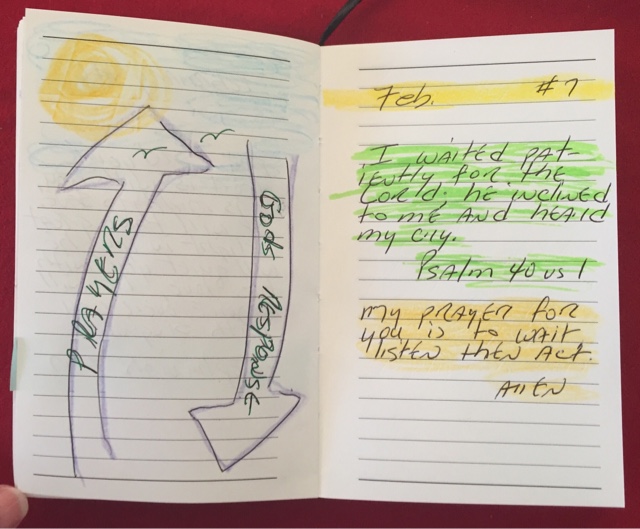 PRAYERS
Gods Response
Feb. #7
I waited pat-
iently for the
Lord. he inclined
to me and heard
my cry.
Psalm 40 vs 1
my prayer for
you is to wait
listen then Act.
Amen